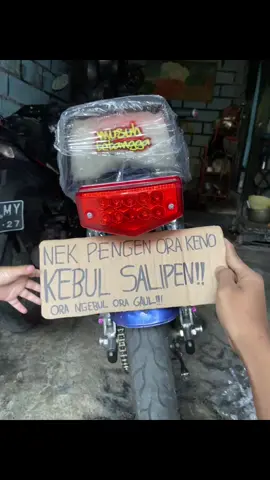 musuh
tetangga
MY
27
NEK PENGEN ORA KENO
KEBUL SALIPEN!!
ORA NGEBUL ORA GAUL..!!!